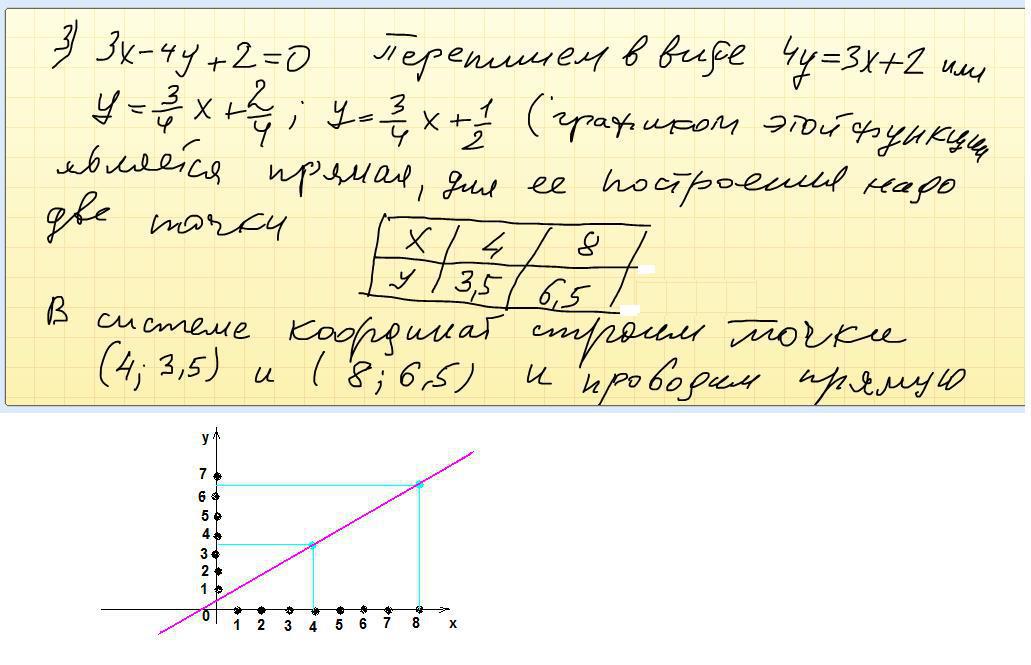 3) 3x-4y+2=0 Перепишем в виде 4y=3x+2 или
y=3/4 x+2/4; y=3/4 x+1/2 (графиком этой функции
является прямая, для ее построения надо
две точки
x 4 8
y 3,5 6,5
В системе координат строим точки
(4; 3,5) и (8; 6,5) и проводим прямую
y
7
6
5
4
3
2
1
0 1 2 3 4 5 6 7 8 x